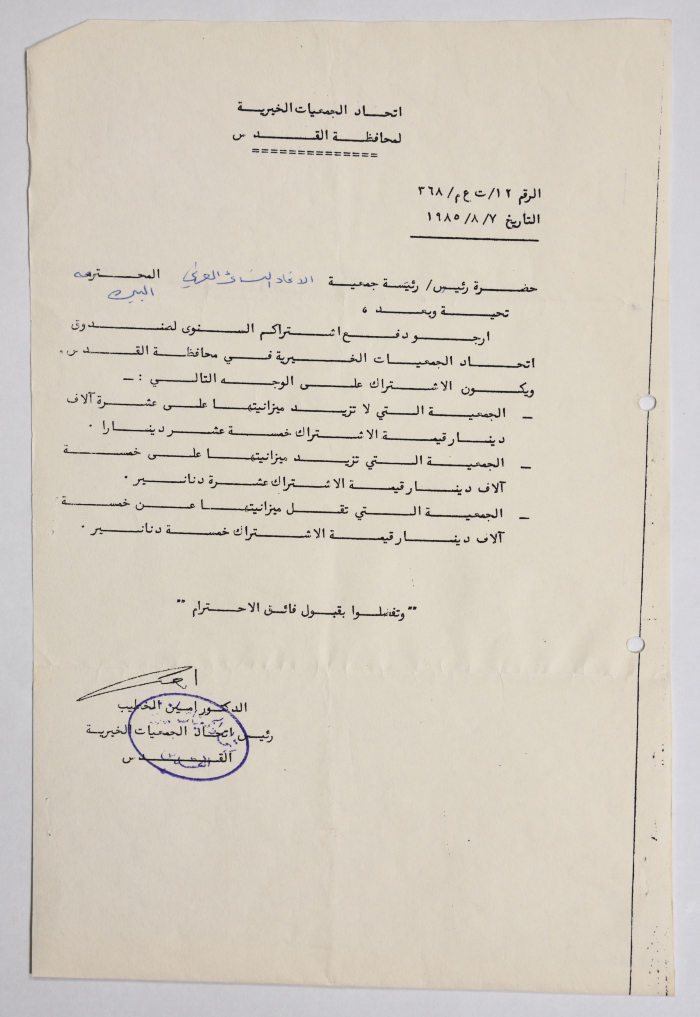 اتحاد الجمعيات الخيرية
لمحافظة القدس
=============
الرقم ١٢/ت ع م/٣٦٨
التاريخ ١٩٨٥/٨/٧
حضرة رئيس/ رئيسة جمعية الاتحاد النسائي العربي المحترمه
البيره
تحية وبعد ،
ارجو دفع اشتراكم السنوى لصندوق
اتحاد الجمعيات الخيرية في محافظة القدس .
ويكون الاشتراك على الوجه التالي :ـ
ـ الجمعية التي لا تزيد ميزانيتها على عشرة آلاف
دينار قيمة الاشتراك خمسة عشر دينارا .
ـ الجمعية التي تزيد ميزانيتها على خمسة
آلاف دينار قيمة الاشتراك عشرة دنانير .
ـ الجمعية التي تقل ميزانيتها عن خمسة
آلاف دينار قيمة الاشتراك خمسة دنانير .
"وتفضلوا بقبول فائق الاحترام "
الدكتور امين الخطيب
رئيس اتحاد الجمعيات الخيرية
القدس